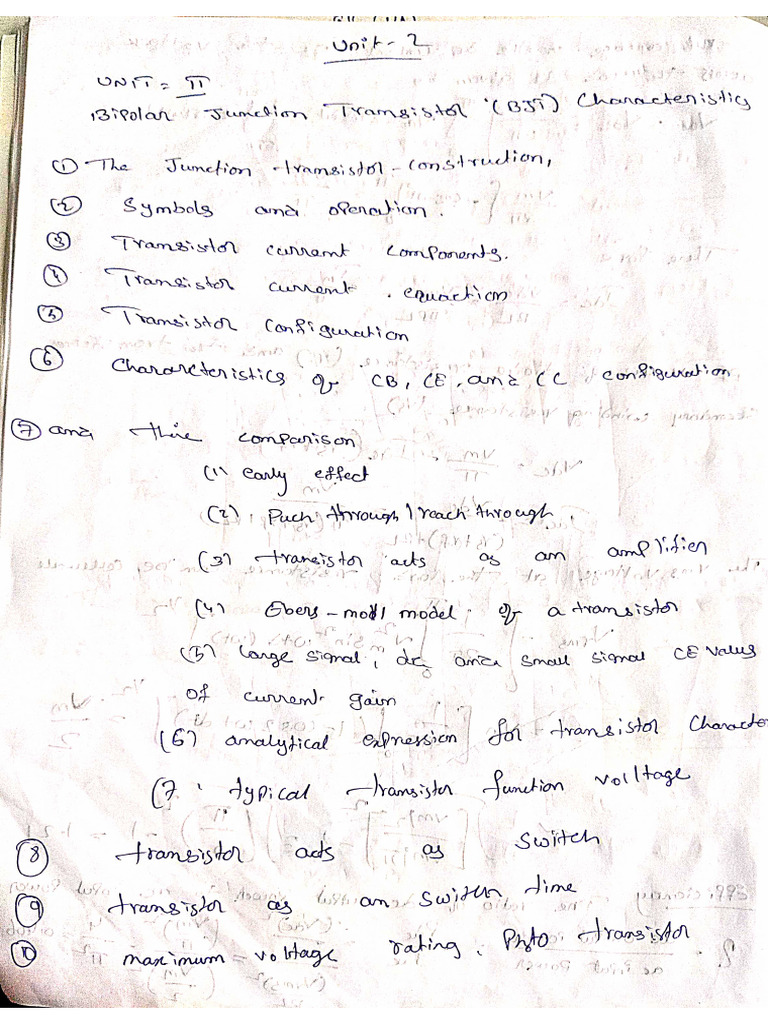 Unit - 2
UNIT = II
Bipolar Junction Transistor (BJT) Characteristics
① The Junction transistor - construction,
② Symbols and operation.
③ Transistor current components.
④ Transistor current equaction
⑤ Transistor configuration
⑥ Chararcteristics of CB, CE, and CC configuration
⑦ and thire comparison
(1) early effect
(2) Puch through / reach through
(3) transistor acts as an amplifier
(4) Ebers - moll model of a transistor
(5) large signal, dc and small signal CE values
of current gain
(6) analytical expression for transistor Character
(7. typical transistor function volltage
⑧ transistor acts as switch
⑨ transistor as an switch time
⑩ maximum - voltage rating. Phto transistor